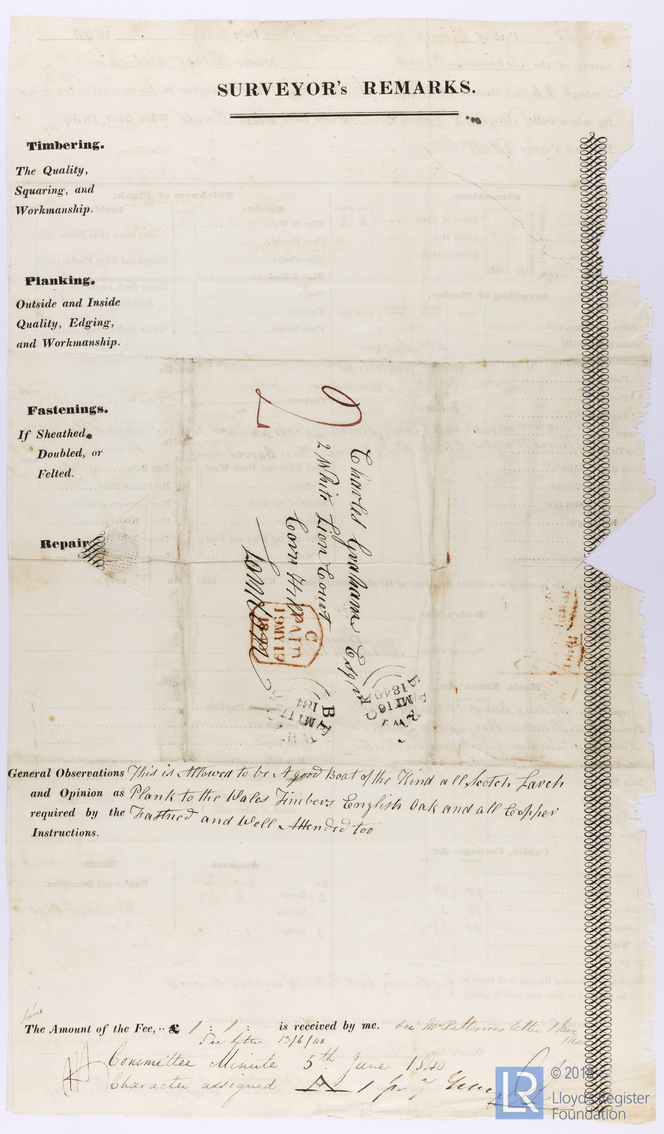 SURVEYOR's REMARKS.
Timbering.
The Quality,
Squaring, and
Workmanship.
Planking.
Outside and Inside
Quality, Edging,
and Workmanship.
Fastenings.
If Sheathed,
Doubled, or
Felted.
Repair
2
Charles Graham Esqr
2 White Lion Court
Corn Hill
London
C
PAID
19 MY 19
1840
BERWICK
MY 16
1840
General Observations This is Allowed to be A good Boat of the Kind all Scotch Larch
and Opinion as Plank to the Wales Timbers English Oak and all Copper
required by the Fastned and Well Attended too
Instructions.
The Amount of the Fee, £ 1 : 1 : is received by me. See Mr letter 1 June
See letter 13/6/40
Committee Minute 5th June 1840
Character assigned A 1 for 7 Years
LR
© 2019
Lloyd's Register
Foundation